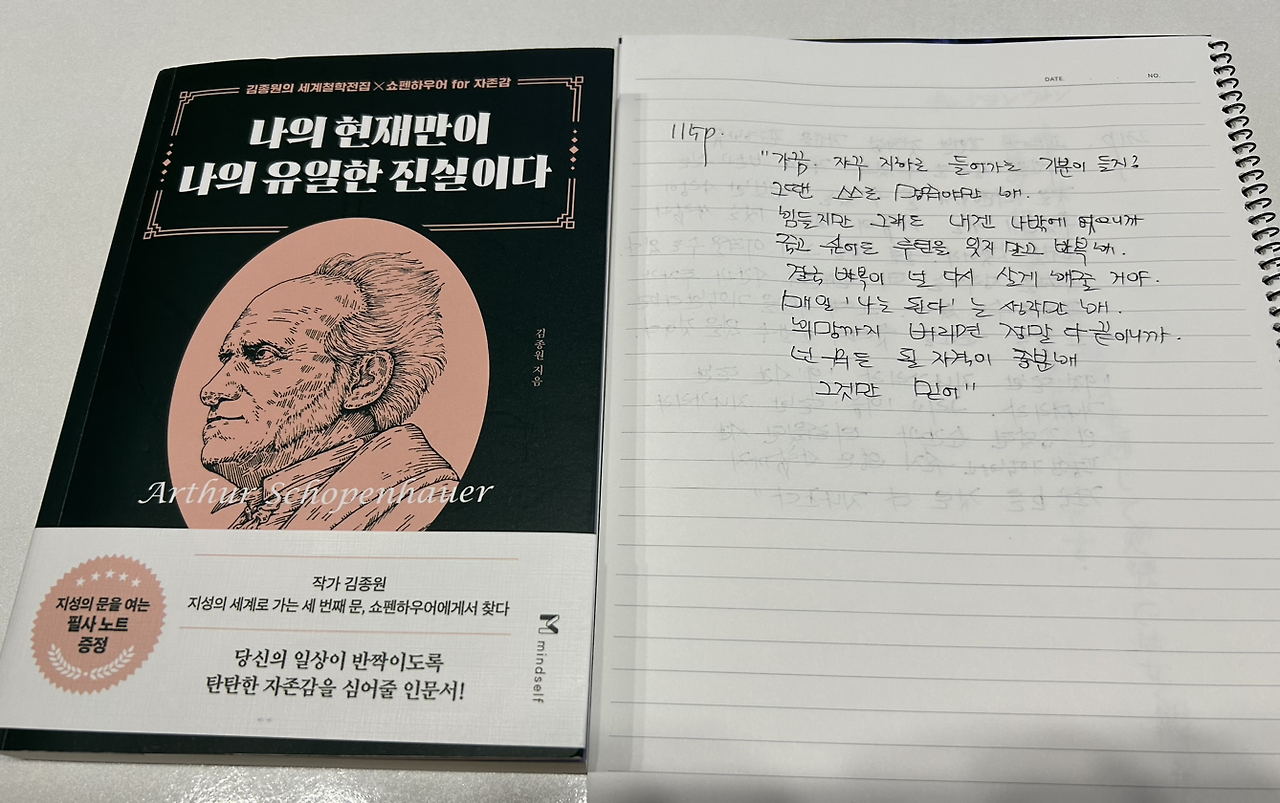 김종원의 세계철학전집×쇼펜하우어 for 자존감
나의 현재만이
나의 유일한 진실이다
김종원 지음
Arthur Schopenhauer
지성의 문을 여는
필사 노트
증정
작가 김종원
지성의 세계로 가는 세 번째 문, 쇼펜하우어에게서 찾다
당신의 일상이 반짝이도록
탄탄한 자존감을 심어줄 인문서!
mindself
DATE. NO.
115p.
"가끔. 자꾸 지하로 들어가는 기분이 들지?
그땐 스스로 멈춰야만 해.
힘들지만 그래도 내겐 나밖에 없으니까
굶고 싶어도 루틴을 잊지 말고 반복해.
결국 반복이 널 다시 살게 해줄 거야.
매일 '나는 된다'는 생각만 해.
희망까지 버리면 정말 다 끝이니까.
넌 뭐든 될 자격이 충분해
그것만 믿어"